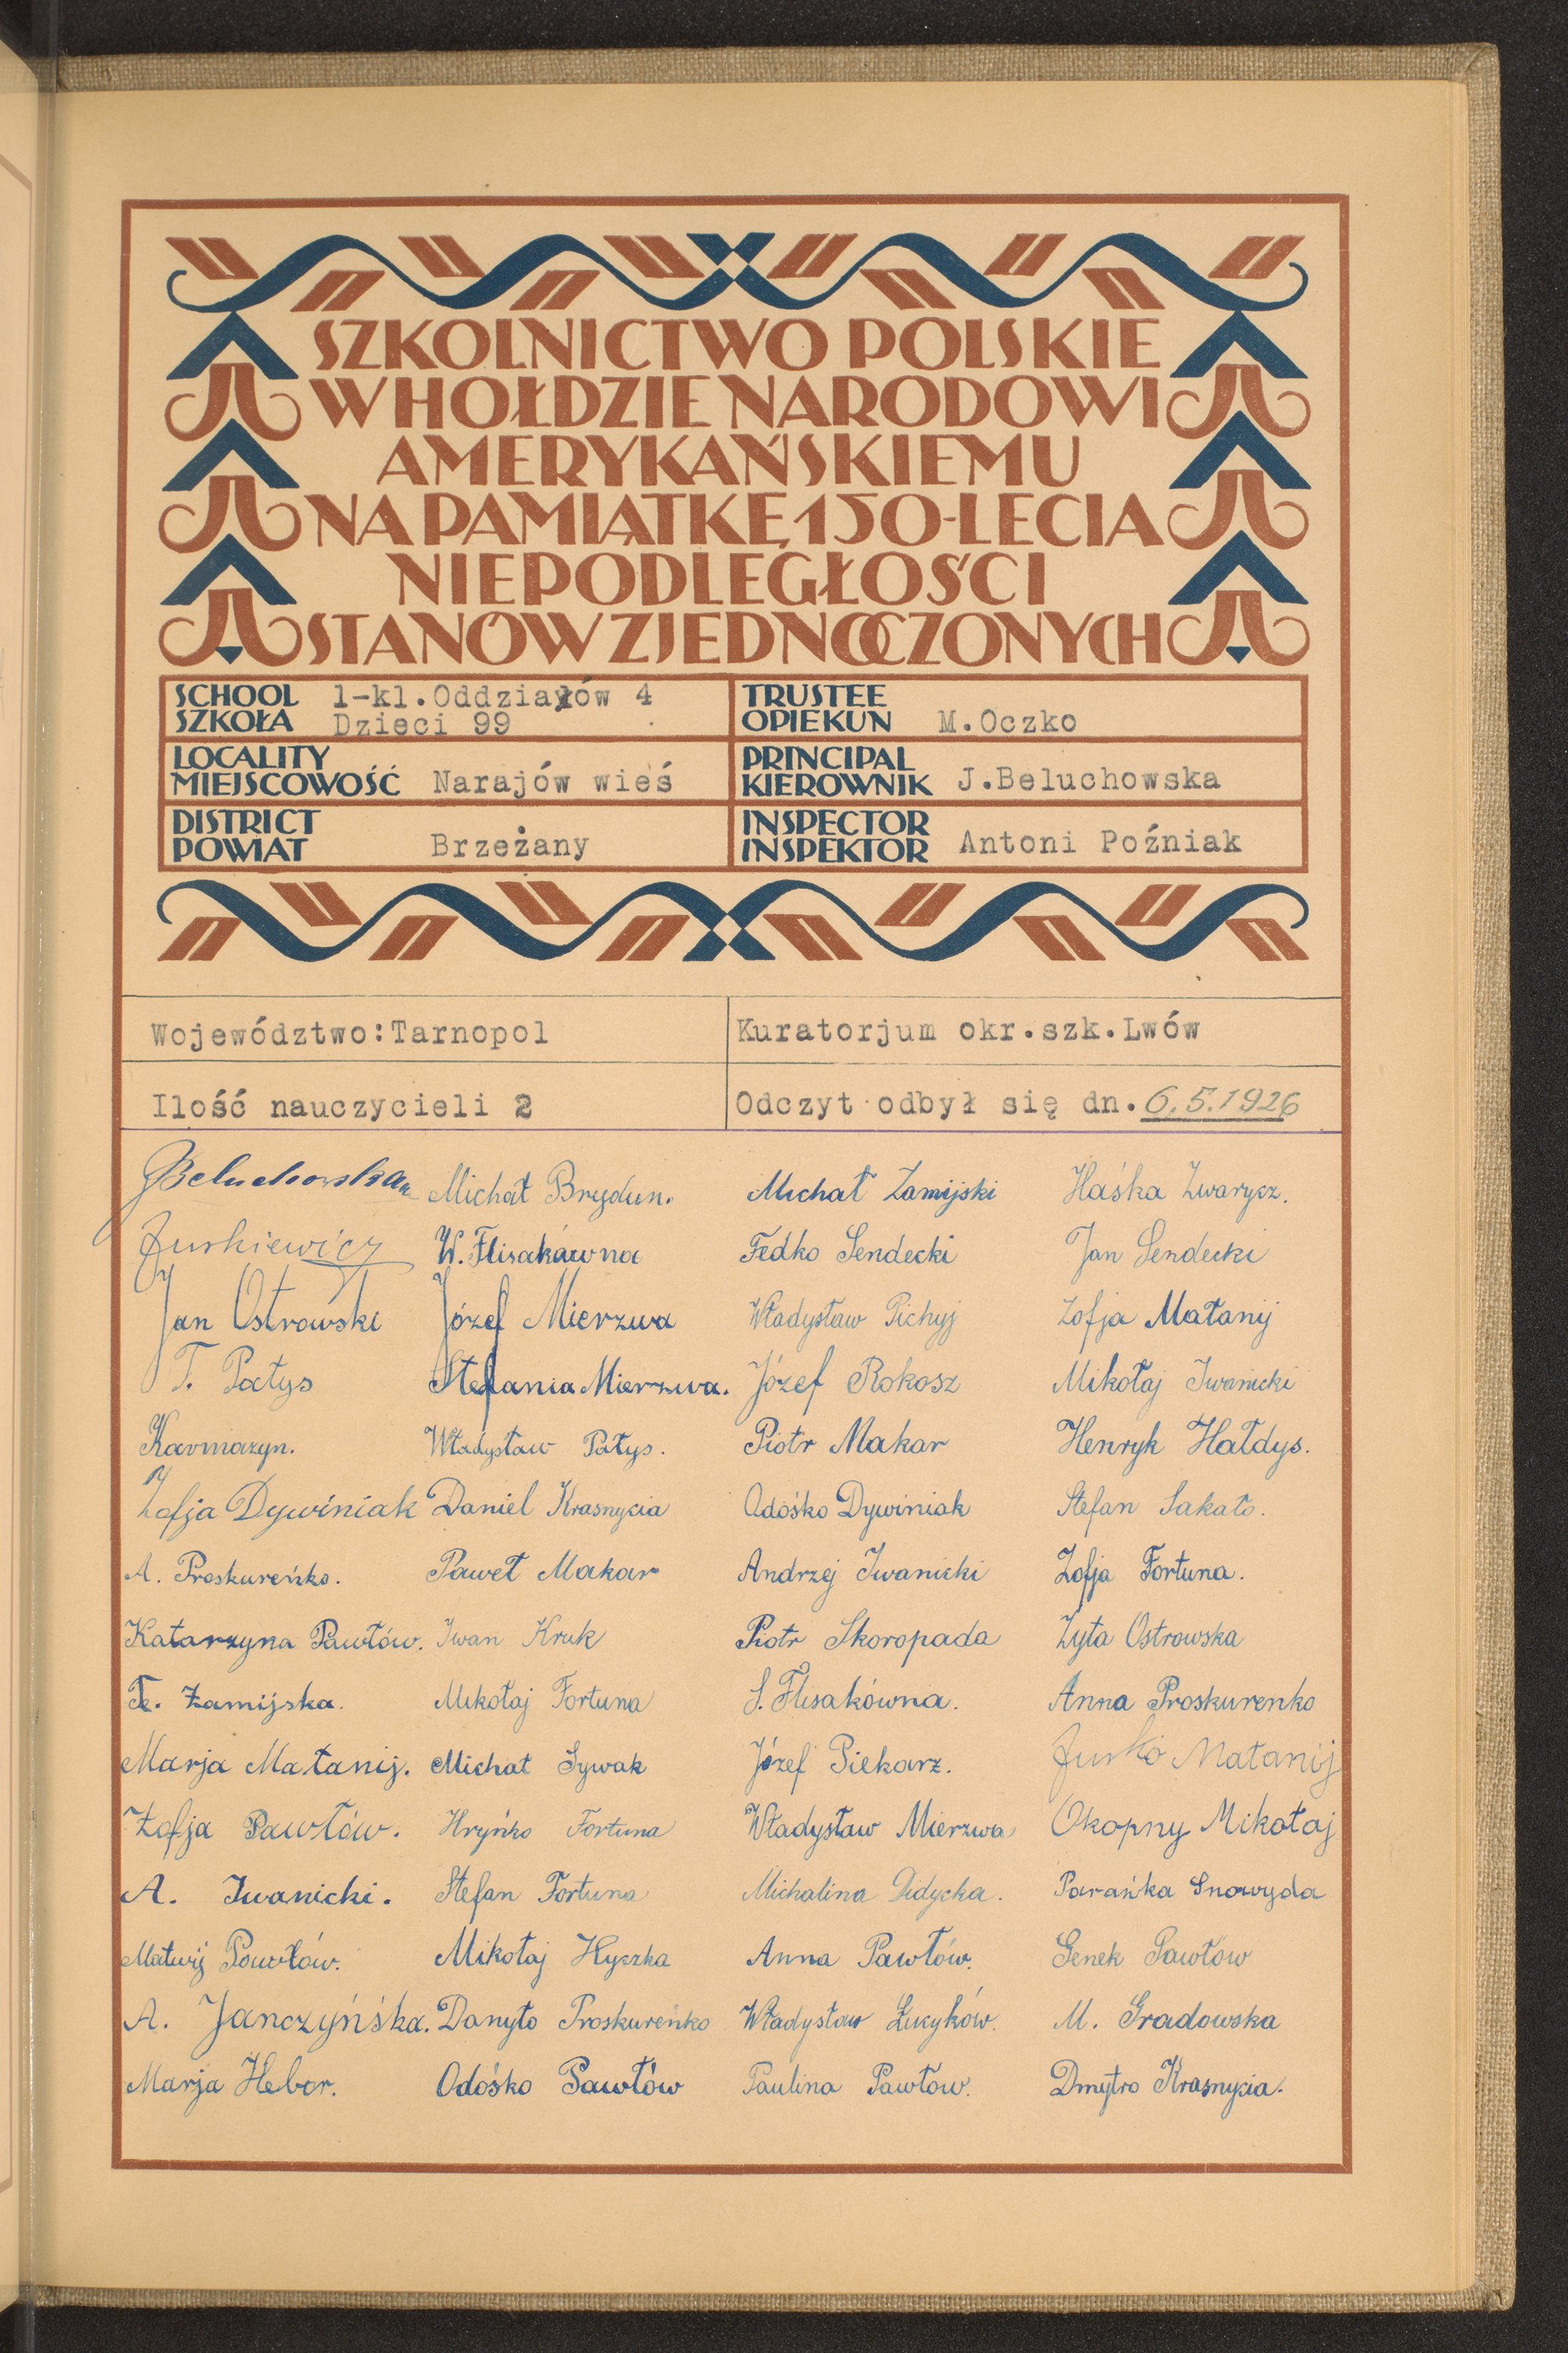 SZKOLNICTWO POLSKIE
W HOŁDZIE NARODOWI
AMERYKAŃSKIEMU
NA PAMIĄTKĘ 150-LECIA
NIEPODLEGŁOŚCI
STANÓW ZJEDNOCZONYCH
SCHOOL
SZKOŁA
1-kl.Oddziałów 4
Dzieci 99
TRUSTEE
OPIEKUN M.Oczko
LOCALITY
MIEJSCOWOŚĆ Narajów wieś
PRINCIPAL
KIEROWNIK J.Beluchowska
DISTRICT
POWIAT Brzeżany
INSPECTOR
INSPEKTOR Antoni Poźniak
Województwo:Tarnopol
Kuratorjum okr.szk.Lwów
Ilość nauczycieli 2
Odczyt odbył się dn. 6.5.1926
JBeluchowska
Jurkiewicz
Jan Ostrowski
T. Patys
Karmazyn.
Zofja Dywiniak
A. Proskureńko.
Katarzyna Pawłów.
Te. Zamijska.
Marja Matanij.
Zofja Pawłów.
A. Iwanicki.
Matwij Pawłów.
A. Janczyńśka.
Marja Hebor.
Michał Brydun.
W. Flisakówna
Józef Mierzwa
Stefania Mierzwa.
Władysław Patys.
Daniel Krasnycia
Paweł Makar
Iwan Kruk
Mikołaj Fortuna
Michał Sywak
Hryńko Fortuna
Stefan Fortuna
Mikołaj Hyczka
Danyło Proskureńko
Odośko Pawłów
Michał Zamijski
Fedko Sendecki
Władysław Pichyj
Józef Rokosz
Piotr Makar
Odośko Dywiniak
Andrzej Iwanicki
Piotr Skoropada
S. Flisakówna.
Józef Piekarz.
Władysław Mierzwa
Michalina Didycka.
Anna Pawłów.
Władysław Łucyków.
Paulina Pawłow.
Haśka Zwarycz.
Jan Sendecki
Zofja Matanij
Mikołaj Iwanicki
Henryk Hałdys.
Stefan Sakało.
Zofja Fortuna.
Zyta Ostrowska
Anna Proskurenko
Jurko Matanij
Okopny Mikołaj
Parańka Snowyda
Genek Pawłów
M. Gradowska
Dmytro Krasnycia.